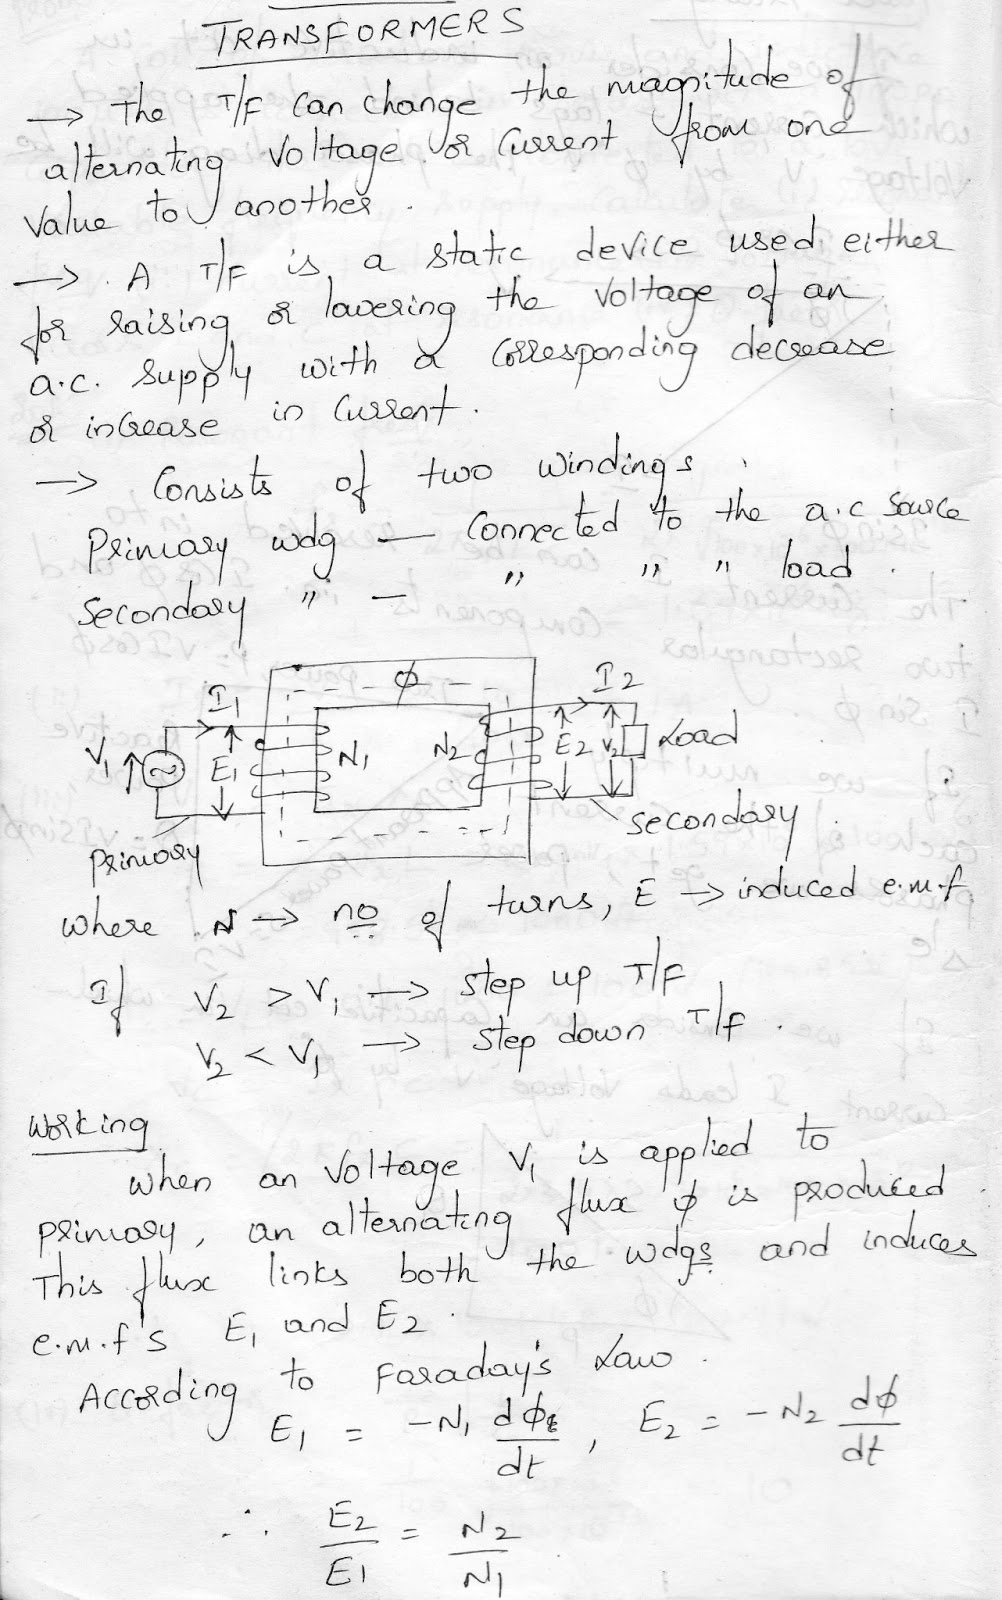 TRANSFORMERS
→ The T/F can change the magnitude of
alternating voltage or current from one
value to another.
→ A T/F is a static device used either
for raising or lowering the voltage of an
a.c. supply with a corresponding decrease
or increase in current.
→ Consists of two windings.
Primary wdg — Connected to the a.c source
Secondary " — " " " load.
ϕ
I1 I2
V1 E1 N1 N2 E2 V2 Load
Primary secondary
where N → no of turns, E → induced e.m.f
If V2 > V1 → step up T/F
V2 < V1 → step down T/F.
Working
when an voltage V1 is applied to
primary, an alternating flux ϕ is produced.
This flux links both the wdgs and induces
e.m.f's E1 and E2.
According to Faraday's Law.
E1 = -N1 dϕ/dt, E2 = -N2 dϕ/dt
∴ E2/E1 = N2/N1